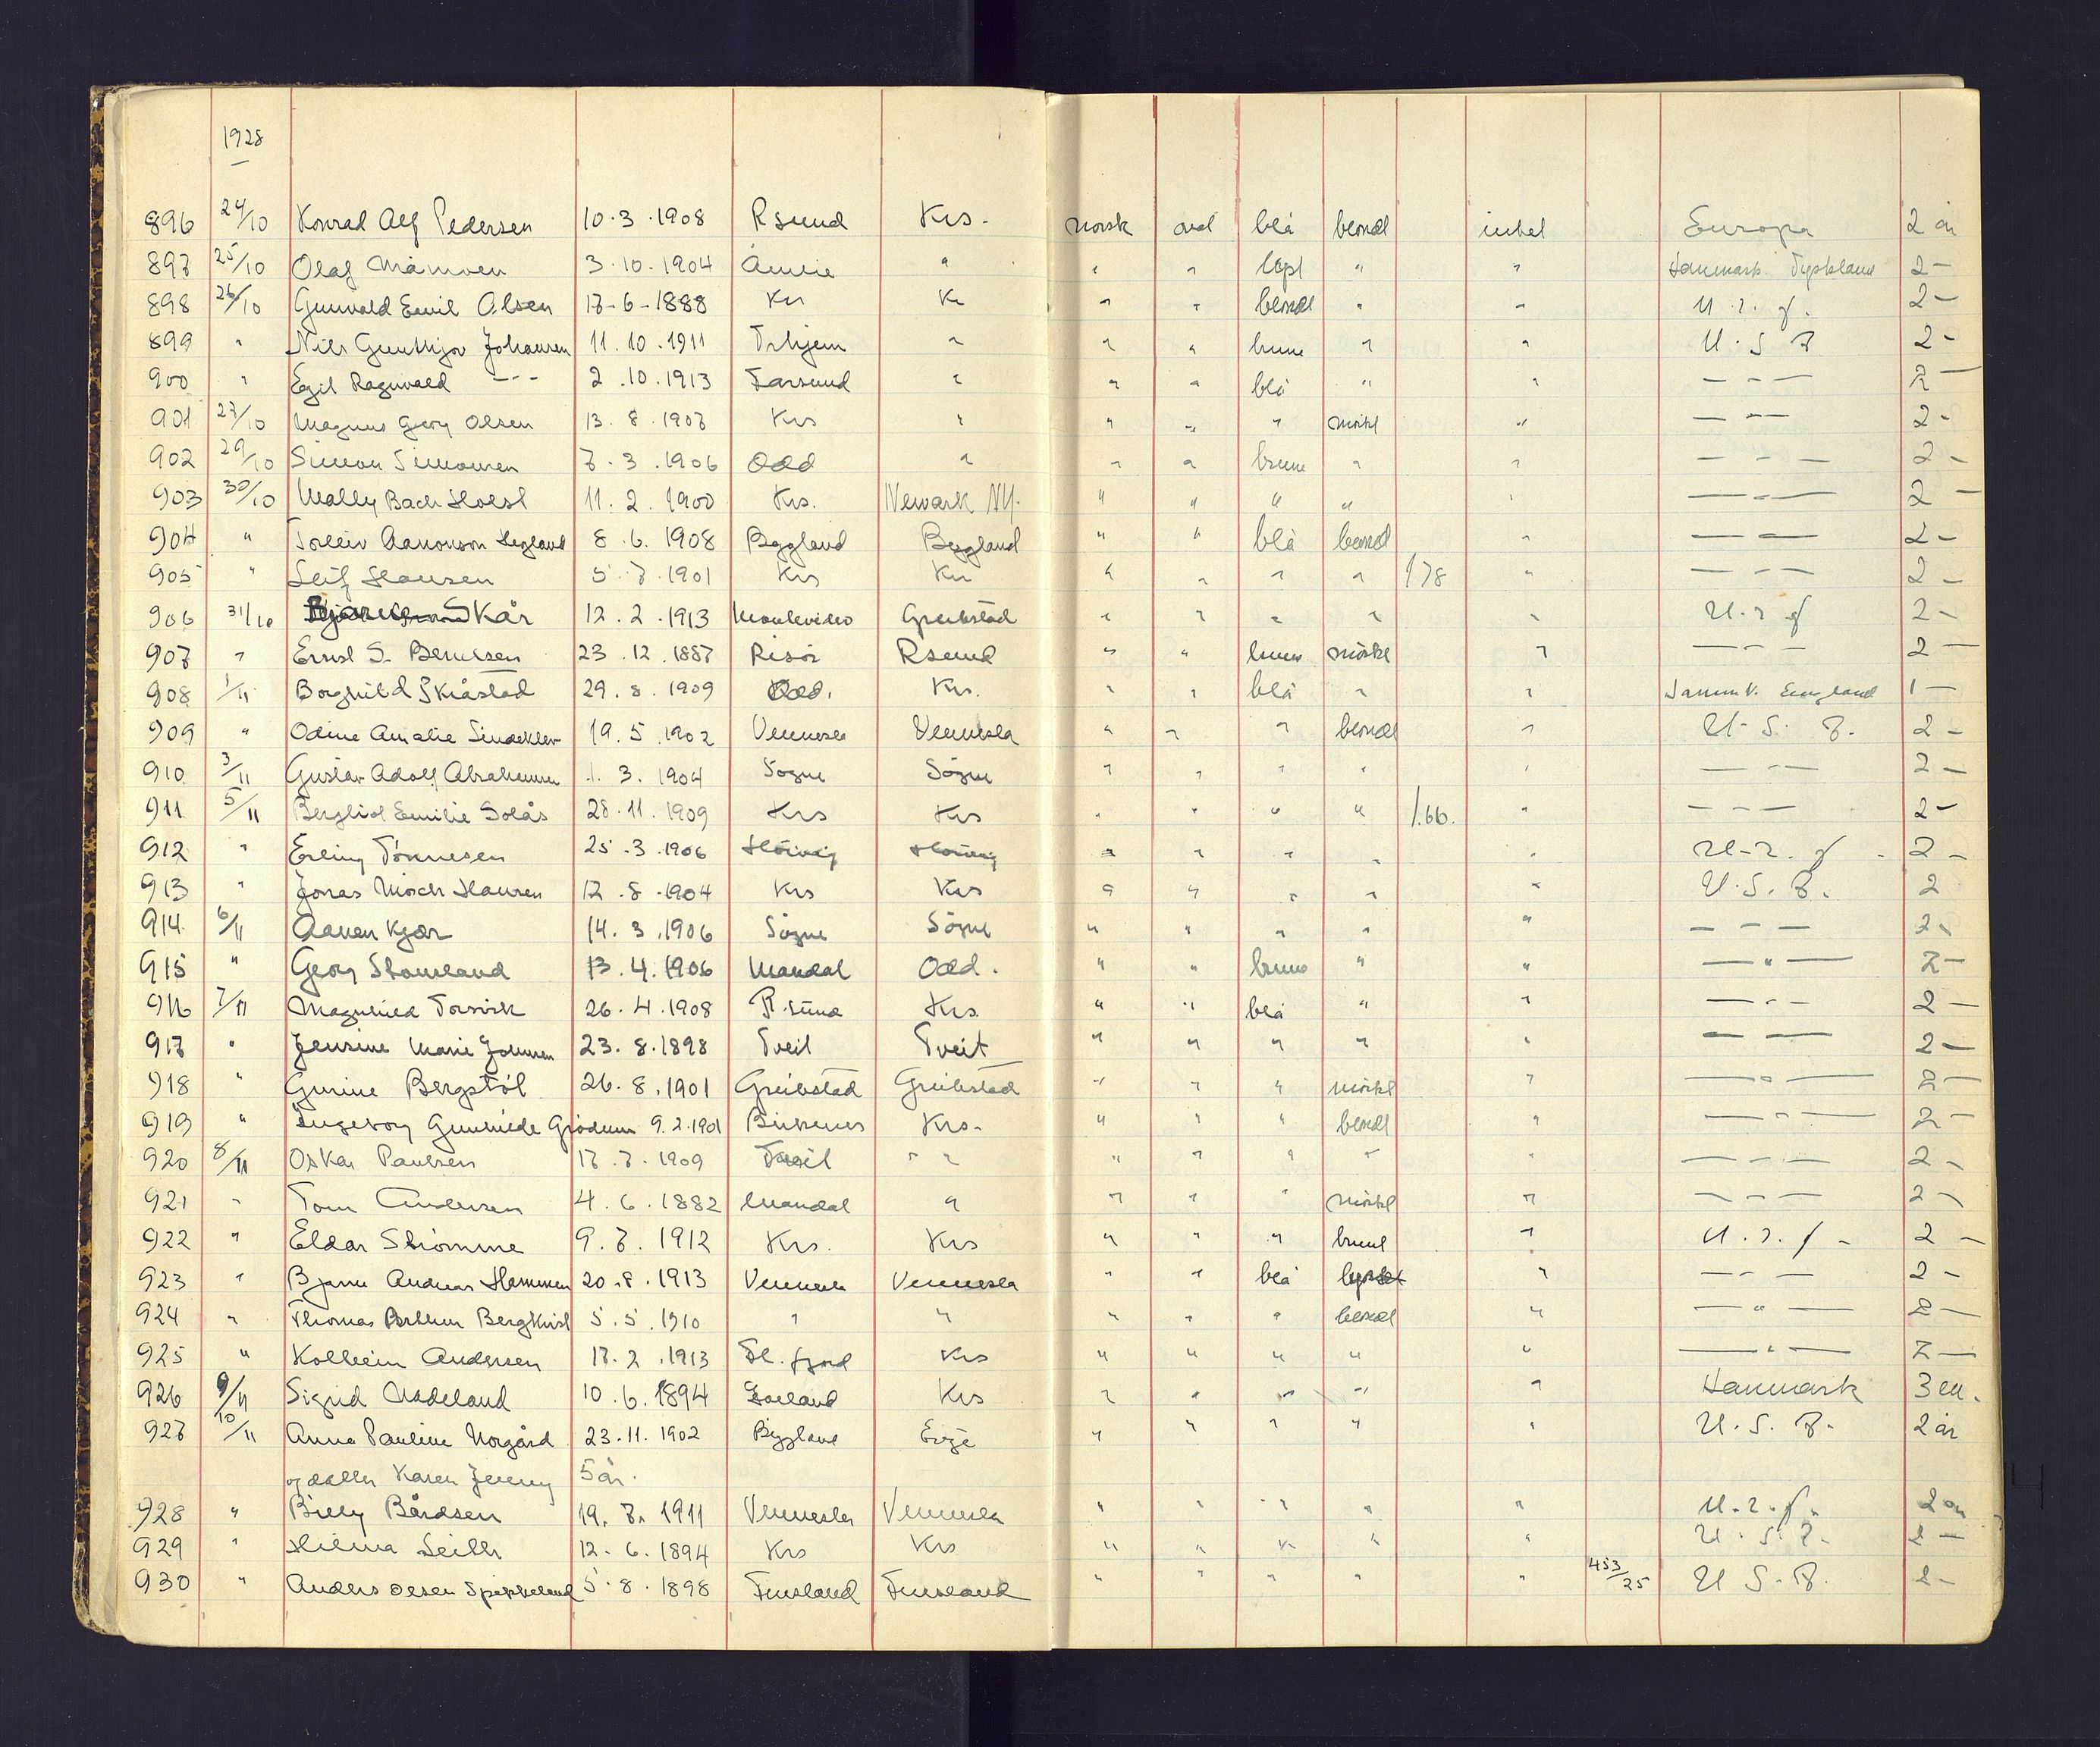 1928
896 24/10 Konrad Alf Pedersen 10.3.1908 Rsund Krs. norsk oval blå blond intet Europa 2 år
897 25/10 Olaf 3.10.1904 " " " " " Danmark Tyskland 2 –
898 26/10 Gunvald Emil Olsen 17-6-1888 Krs Kr " " blond " " U.r.f. 2 –
899 " Nils Johansen 11.10.1911 " " " brune " " U.S.A 2 –
900 " Egil Ragnvald - - - 2.10.1913 Farsund " " " blå " " — - — 2 —
901 27/10 Magnus Georg Olsen 13.8.1907 Krs " " " " mörkt " — - — 2 –
902 29/10 Simon Simonsen 7.3.1906 Odd " " " brune " " — - — 2 –
903 30/10 Wally Bach Holst 11.2.1900 Krs. Newark NY. " " " " " — - — 2 —
904 " Torleiv Aanonson Hegland 8.6.1908 Bygland Bygland " " blå blond " — - — 2 –
905 " Leif Hansen 5.7.1901 Krs Kr " " " " 178 " — - — 2 –
906 31/10 Skår 12.2.1913 Montevideo Greibstad " " " " " U.r.f 2 –
907 " Ernst S. Berntsen 23.12.1887 Risör Rsund " " brune mörkt " — - — 2 —
908 1/11 Borghild Skråstad 29.8.1909 Odd. Krs. " " blå " " Danmk. England 1 —
909 " Odine Amalie 19.5.1902 Vennesla Vennesla " " " blond " U.S.A. 2 –
910 3/11 Gustav Adolf Abrahamsen 1.3.1904 Sögne Sögne " " " " " — - — 2 –
911 5/11 Bergliot Emilie Solås 28.11.1909 Krs Krs " " " " 1.66. " — - — 2 –
912 " Erling Tönnesen 25.3.1906 " " " " " U.r.f. 2 –
913 " Jonas Moch Hansen 17.8.1904 Krs Krs " " " " " U.S.A. 2
914 6/11 Aanen Kjær 14.3.1906 Sögne Sögne " " " " " — - — 2 –
915 " Georg 13.4.1906 Mandal Odd. " " brune " " — " — 2 –
916 7/11 Magnhild 26.4.1908 R.sund Krs. " " blå " " — - — 2 —
917 " Jensine Marie 23.8.1898 Tveit Tveit " " " " " — — 2 —
918 " Gurine Bergstöl 26.8.1901 Greibstad Greibstad " " " mörkt " — " — 2 —
919 " Ingeborg Gunhilde 9.2.1901 Birkenes Krs. " " " blondt " — " — 2 –
920 8/11 Oskar Paulsen 17.7.1909 Tveit " " " " " " — - — 2 –
921 " Tom Andersen 4.6.1882 Mandal " " " " mörkt " — - — 2 –
922 " Eldar Strömme 9.7.1912 Krs. Krs " " " brunt " U.r.f. – 2 —
923 " Bjarne Andreas 20.8.1913 Vennesla Vennesla " " blå lyst " — - — 2 –
924 " Thomas Arthur Bergkvist 5.5.1910 " " " " " blond " — " — 2 —
925 " Kolbein Andersen 17.2.1913 Fl.fjord Krs " " " " " — " — 2 —
926 9/11 Sigrid Udeland 10.6.1894 Krs " " " " " Danmark 3 m.
927 10/11 Anna Pauline Norgård 23.11.1902 Bygland Evje " " " " " U.S.A. 2 år
og datter Karen Jenny 5 år.
928 " Billy Bårdsen 19.7.1911 Vennesla Vennesla " " " " " U.r.f. 2 år
929 " Hilma 12.6.1894 Krs Krs " " " " " U.S.A. 2 –
930 " Anders Olsen 5.8.1898 Finsland Finsland " " " " " 453/25 U S.A. 2 –